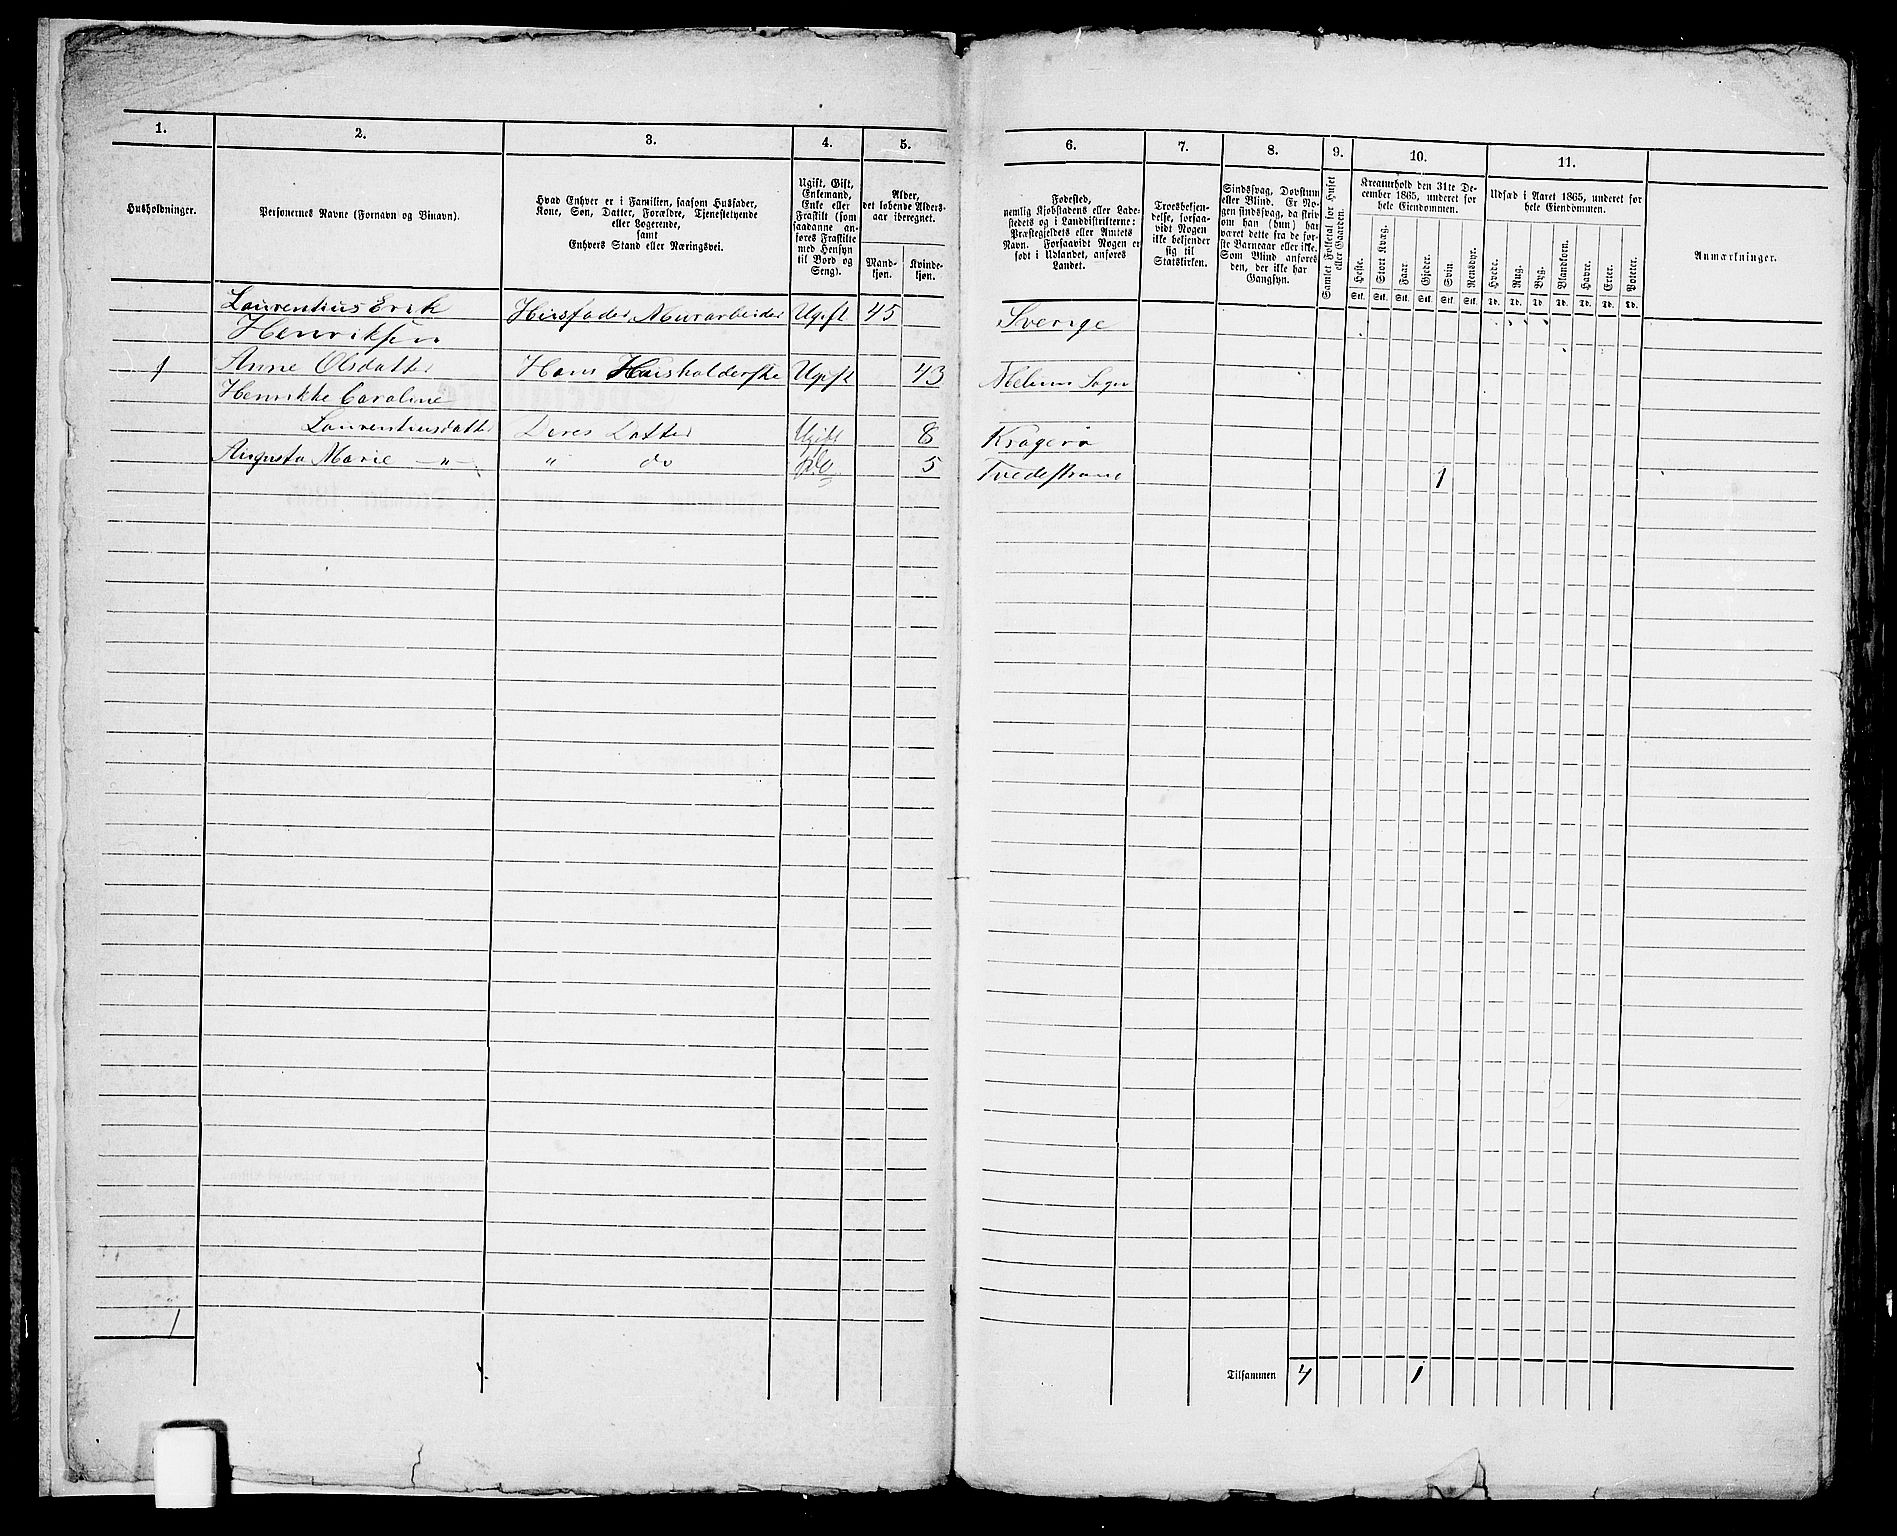 1. 2. 3. 4. 5. 6. 7. 8. 9. 10. 11.
Husholdninger.
Personernes Navne (Fornavn og Binavn).
Hvad Enhver er i Familien, saasom Husfader,
Kone, Søn, Datter, Forældre, Tjenestetyende
eller Logerende,
samt
Enhvers Stand eller Næringsvei.
Ugift, Gift,
Enkemand,
Enke eller
Fraskilt (som
saadanne an-
føres Fraskilte
med Hensyn
til Bord og
Seng).
Alder,
det løbende Alders-
aar iberegnet.
Mand-
kjøn.
Kvinde-
kjøn.
Fødested,
nemlig Kjøbstadens eller Lade-
stedets og i Landdistrikterne:
Præstegjeldets eller Amtets
Navn. Forsaavidt Nogen er
født i Udlandet, anføres
Landet.
Troesbekjen-
delse, forsaa-
vidt Nogen
ikke bekjender
sig til
Statskirken.
Sindssvag, Døvstum
eller Blind. Er No-
gen sindssvag, da skriv
om han (hun) har
været dette fra de før-
ste Barneaar eller ikke.
Som Blind anføres
den, der ikke har
Gangsyn.
Samlet Folketal for Huset
eller Gaarden.
Kreaturhold den 31te De-
cember 1865, underet for
hele Eiendommen.
Heste. Stort Kvæg. Faar. Gjeder. Svin. Rensdyr.
Stk. Stk. Stk. Stk. Stk. Stk.
Udsæd i Aaret 1865, underet for
hele Eiendommen.
Hvede. Rug. Byg. Blandkorn. Havre. Erter. Poteter.
Td. Td. Td. Td. Td. Td. Td.
Anmærkninger.
Laurentius Erik Husfader, Murarbeider Ugift 45 Sverige
Henriksen
1 Anne Olsdatter Hans Husholderske Ugift 43 Melum Sogn
Henrikke Caroline
Laurentiusdatter Deres Datter Ugift 8 Kragerø
Augusta Marie " " do do 5 Tvedestrand 1
1
Tilsammen 4 1